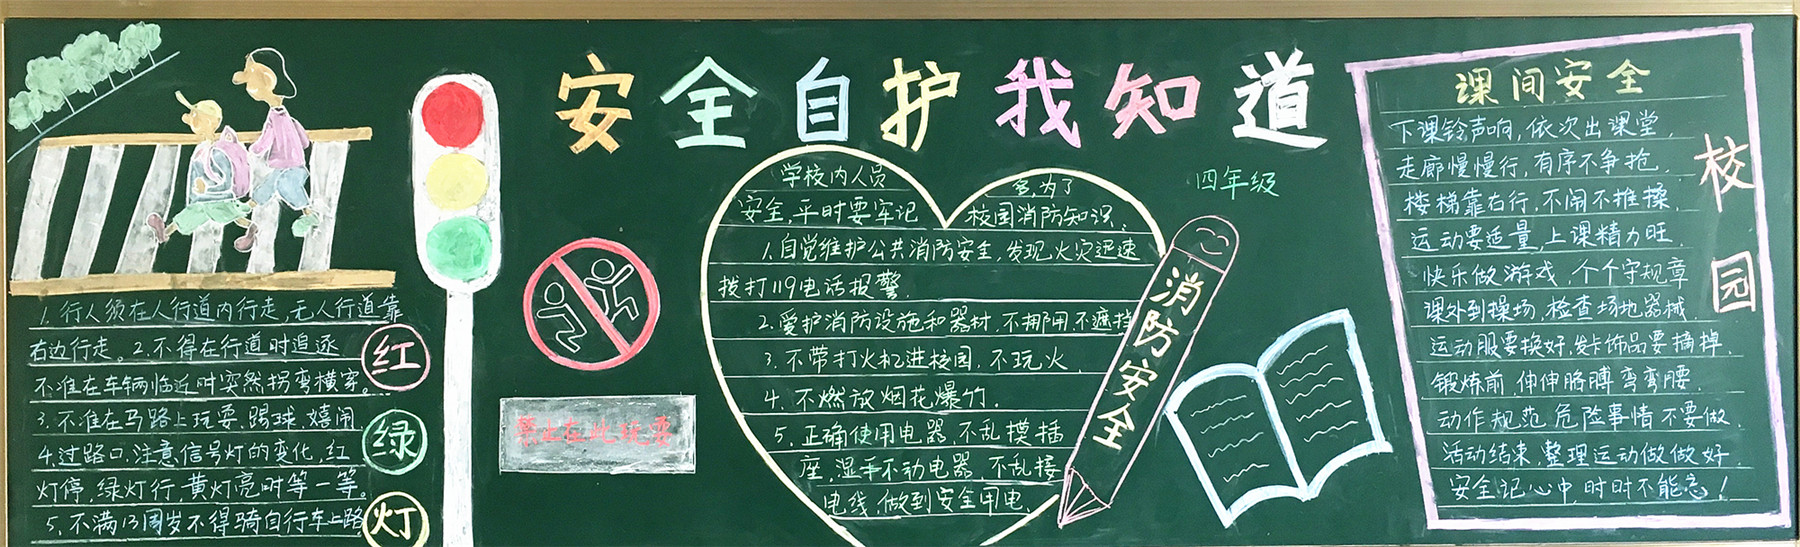 安全自护我知道
四年级
1.行人须在人行道内行走,无人行道靠
右边行走。2.不得在行道时追逐
不准在车辆临近时突然拐弯横穿。
3.不准在马路上玩耍、踢球、嬉闹
4.过路口,注意信号灯的变化,红
灯停,绿灯行,黄灯亮时等一等。
5.不满13周岁不得骑自行车上路
红
绿
灯
禁止在此玩耍
学校内人员
多,为了
安全,平时要牢记
校园消防知识,
1.自觉维护公共消防安全,发现火灾迅速
拨打119电话报警,
2.爱护消防设施和器材,不挪用,不遮挡
3.不带打火机进校园,不玩火,
4.不燃放烟花爆竹,
5.正确使用电器,不乱摸插
座,湿手不动电器,不乱接
电线,做到安全用电,
消防安全
课间安全
下课铃声响,依次出课堂,
走廊慢慢行,有序不争抢,
楼梯靠右行,不闹不推搡,
运动要适量,上课精力旺,
快乐做游戏,个个守规章
课外到操场,检查场地器械,
运动服要换好,发卡饰品要摘掉,
锻炼前,伸伸胳膊弯弯腰,
动作规范,危险事情不要做,
活动结束,整理运动做做好,
安全记心中,时时不能忘!
校园